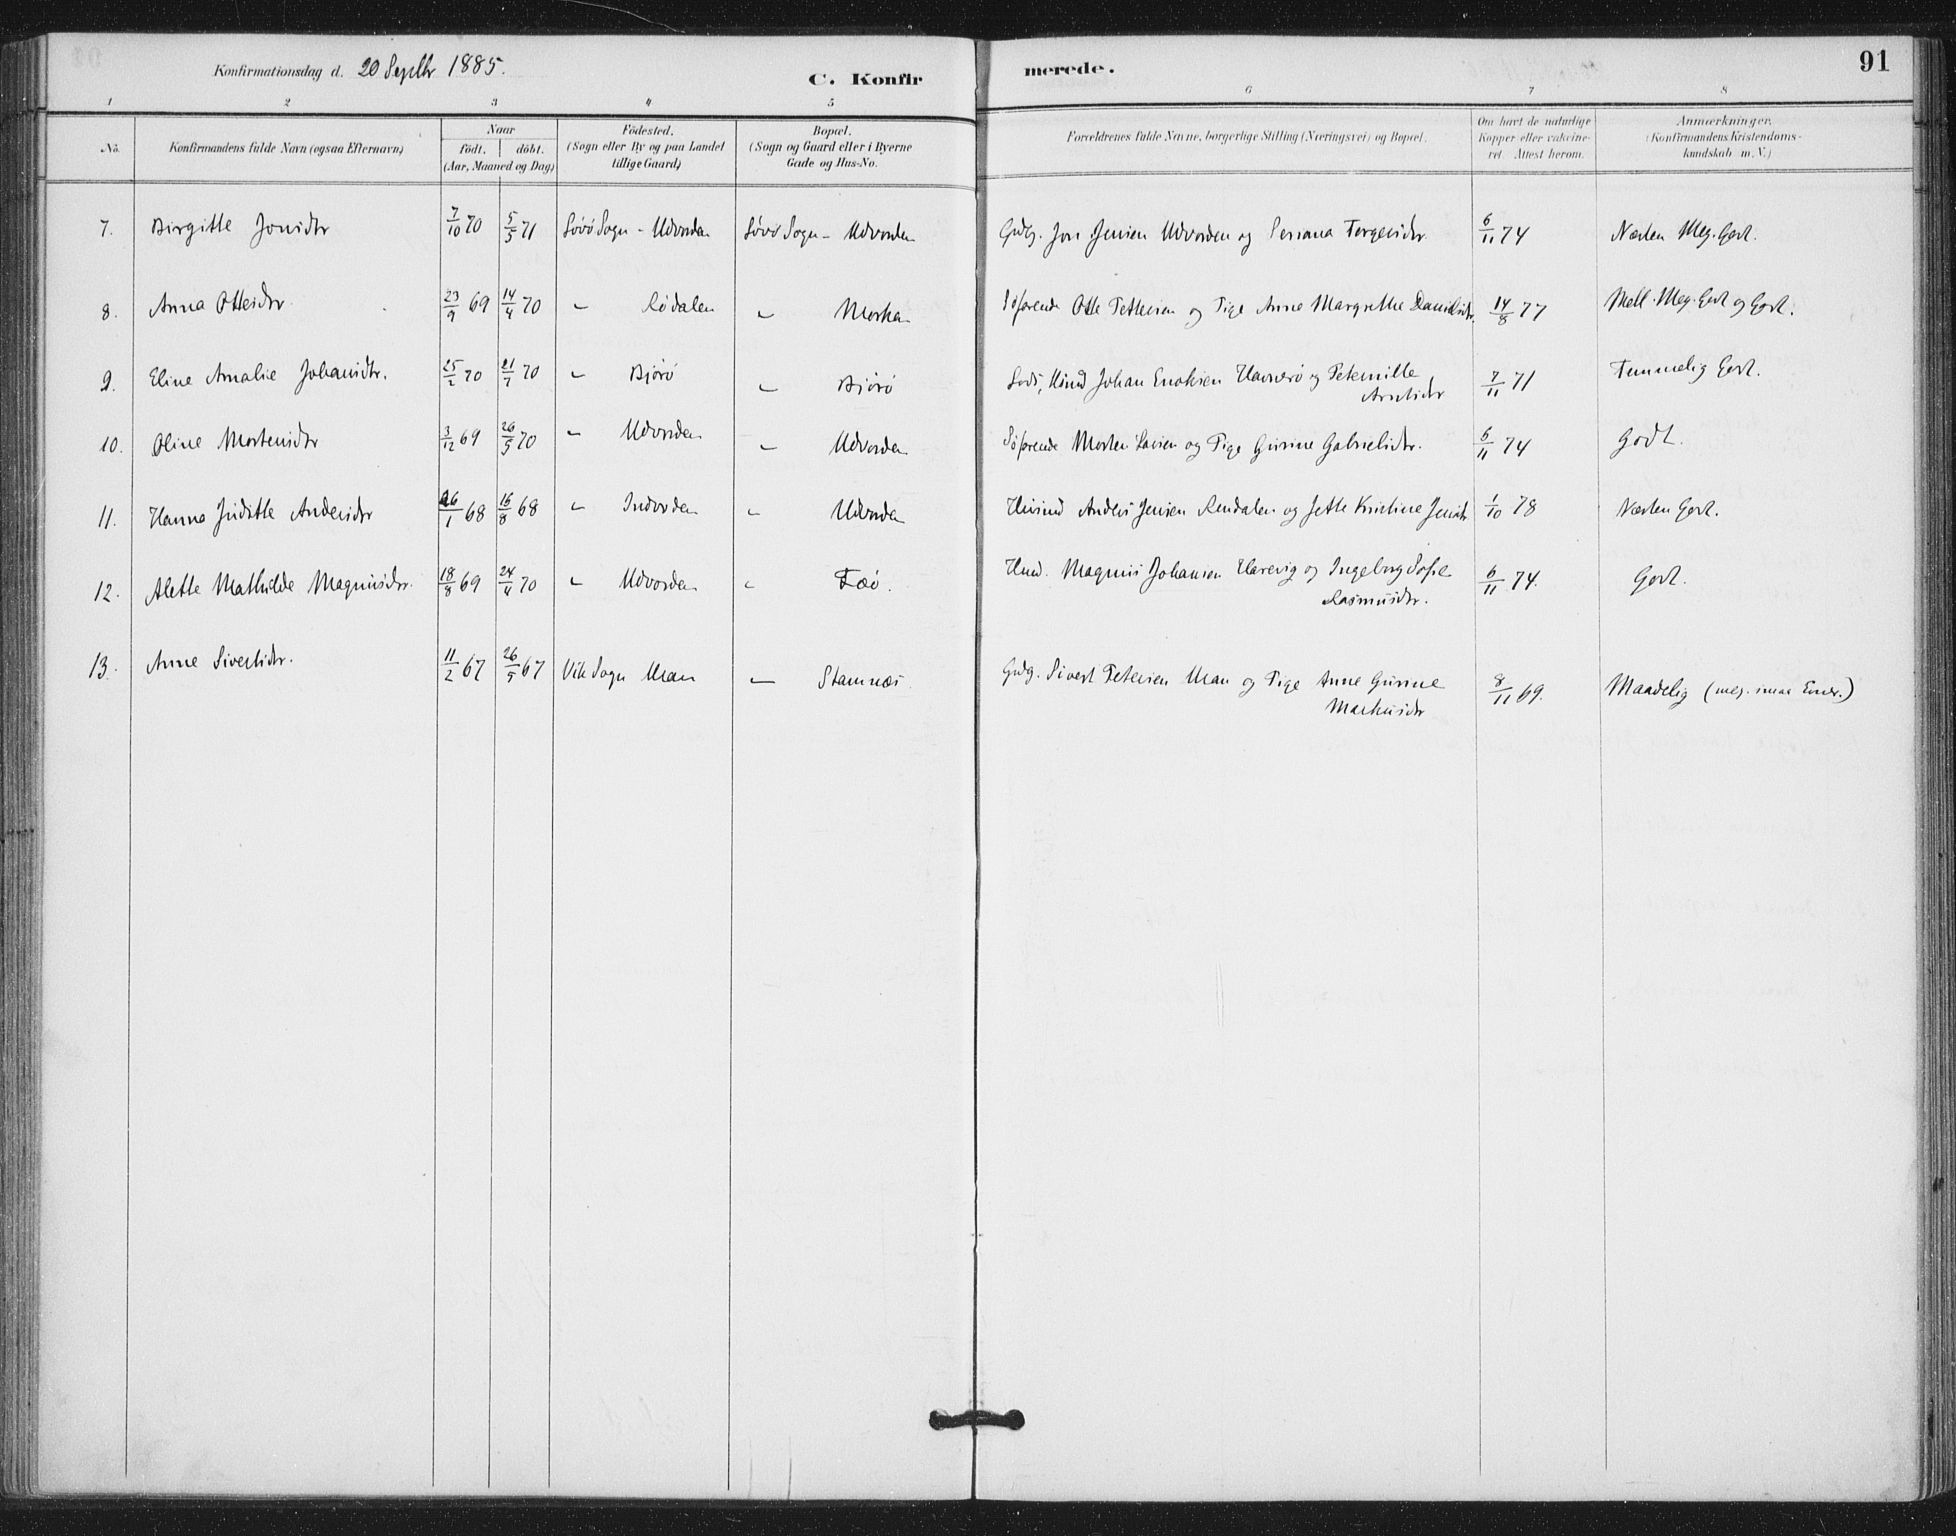 Konfirmationsdag d. 20 Septbr 1885.
C. Konfirmerede.
91
1 2 3 4 5 6 7 8
No. Konfirmandens fulde Navn (ogsaa Efternavn) Naar födt. döbt. (Aar, Maaned og Dag) Födested. (Sogn eller By og paa Landet tillige Gaard) Bopæl. (Sogn og Gaard eller i Byerne Gade og Hus-No. Forældrenes fulde Navne, borgerlige Stilling (Næringsvei) og Bopæl. Om havt de naturlige Kopper eller vakcineret. Attest herom. Anmærkninger, (Konfirmandens Kristendomskundskab m. V.)
7. Birgitte Jonsdtr 7/10 70 5/5 71 Sövö Sogn - Udvorden Sövö Sogn - Udvorden Gdbg. Jon Jensen Udvorden og Torgersdtr. 6/11 74 Næsten Meg. Godt.
8. Anna Ottesdtr. 23/9 69 14/4 70 " Rödalen " Moshan Söfarende Otte Pettersen og Pige Anne Margrethe Danielsdtr. 14/8 77 Mell. Meg. Godt og Godt.
9. Eline Amalie Johansdtr. 25/2 70 21/7 70 " Björö " Björö Lods, Husmd Johan Enoksen Havnerö og Peternille
Arntsdtr 7/11 71 Temmelig Godt.
10. Oline Mortensdtr 3/12 69 26/5 70 " Udvorden " Udvorden Söfarende Morten Larsen og Pige Gurine Gabrielsdtr. 6/11 74 Godt.
11. Hanna Judithe Andersdtr 26/1 68 16/8 68 " Indvorden " Udvorden Husmd Anders Jensen Rendalen og Jette Kristine Jensdtr 1/10 78 Næsten Godt.
12. Alette Mathilde Magnusdtr. 18/8 69 24/4 70 " Udvorden " Fæö. Husmd. Magnus Johansen Harevig og Ingeborg Sofie
Rasmusdtr. 6/11 74. Godt.
13. Anne Sivertsdtr. 11/2 67 26/5 67 Vik Sogn " Stamnæs Gdbg. Sivert Petersen og Pige Anne Gurine
Markusdtr 8/11 69. Maadelig (meg. smaa Evner.)